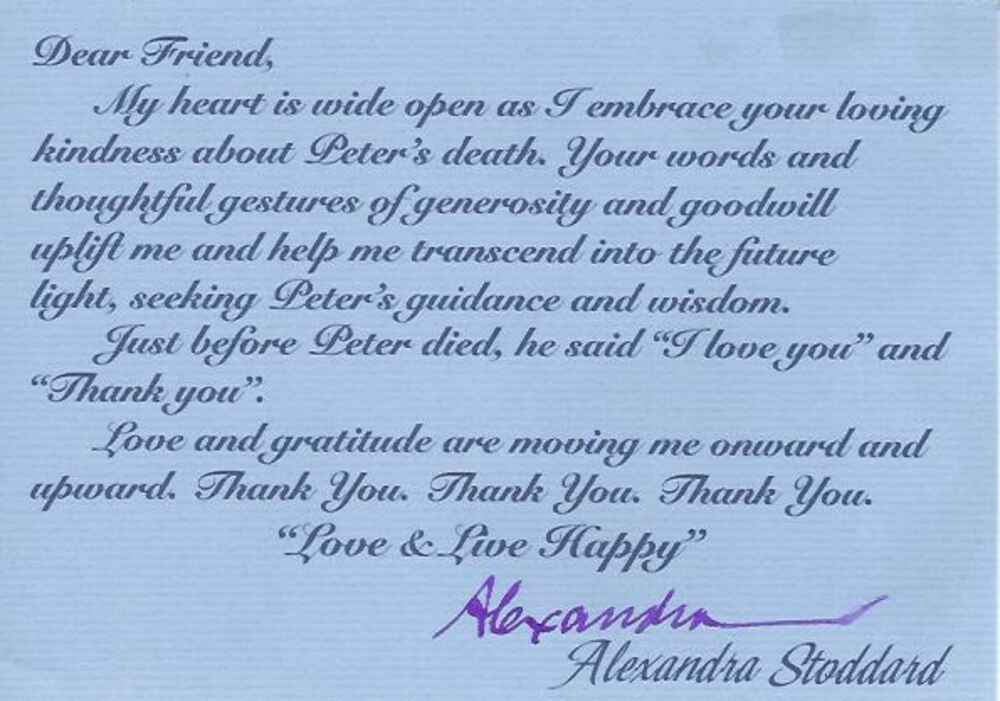 Dear Friend,
My heart is wide open as I embrace your loving
kindness about Peter's death. Your words and
thoughtful gestures of generosity and goodwill
uplift me and help me transcend into the future
light, seeking Peter's guidance and wisdom.
Just before Peter died, he said “I love you” and
“Thank you”.
Love and gratitude are moving me onward and
upward. Thank You. Thank You. Thank You.
“Love & Live Happy”
Alexandra
Alexandra Stoddard